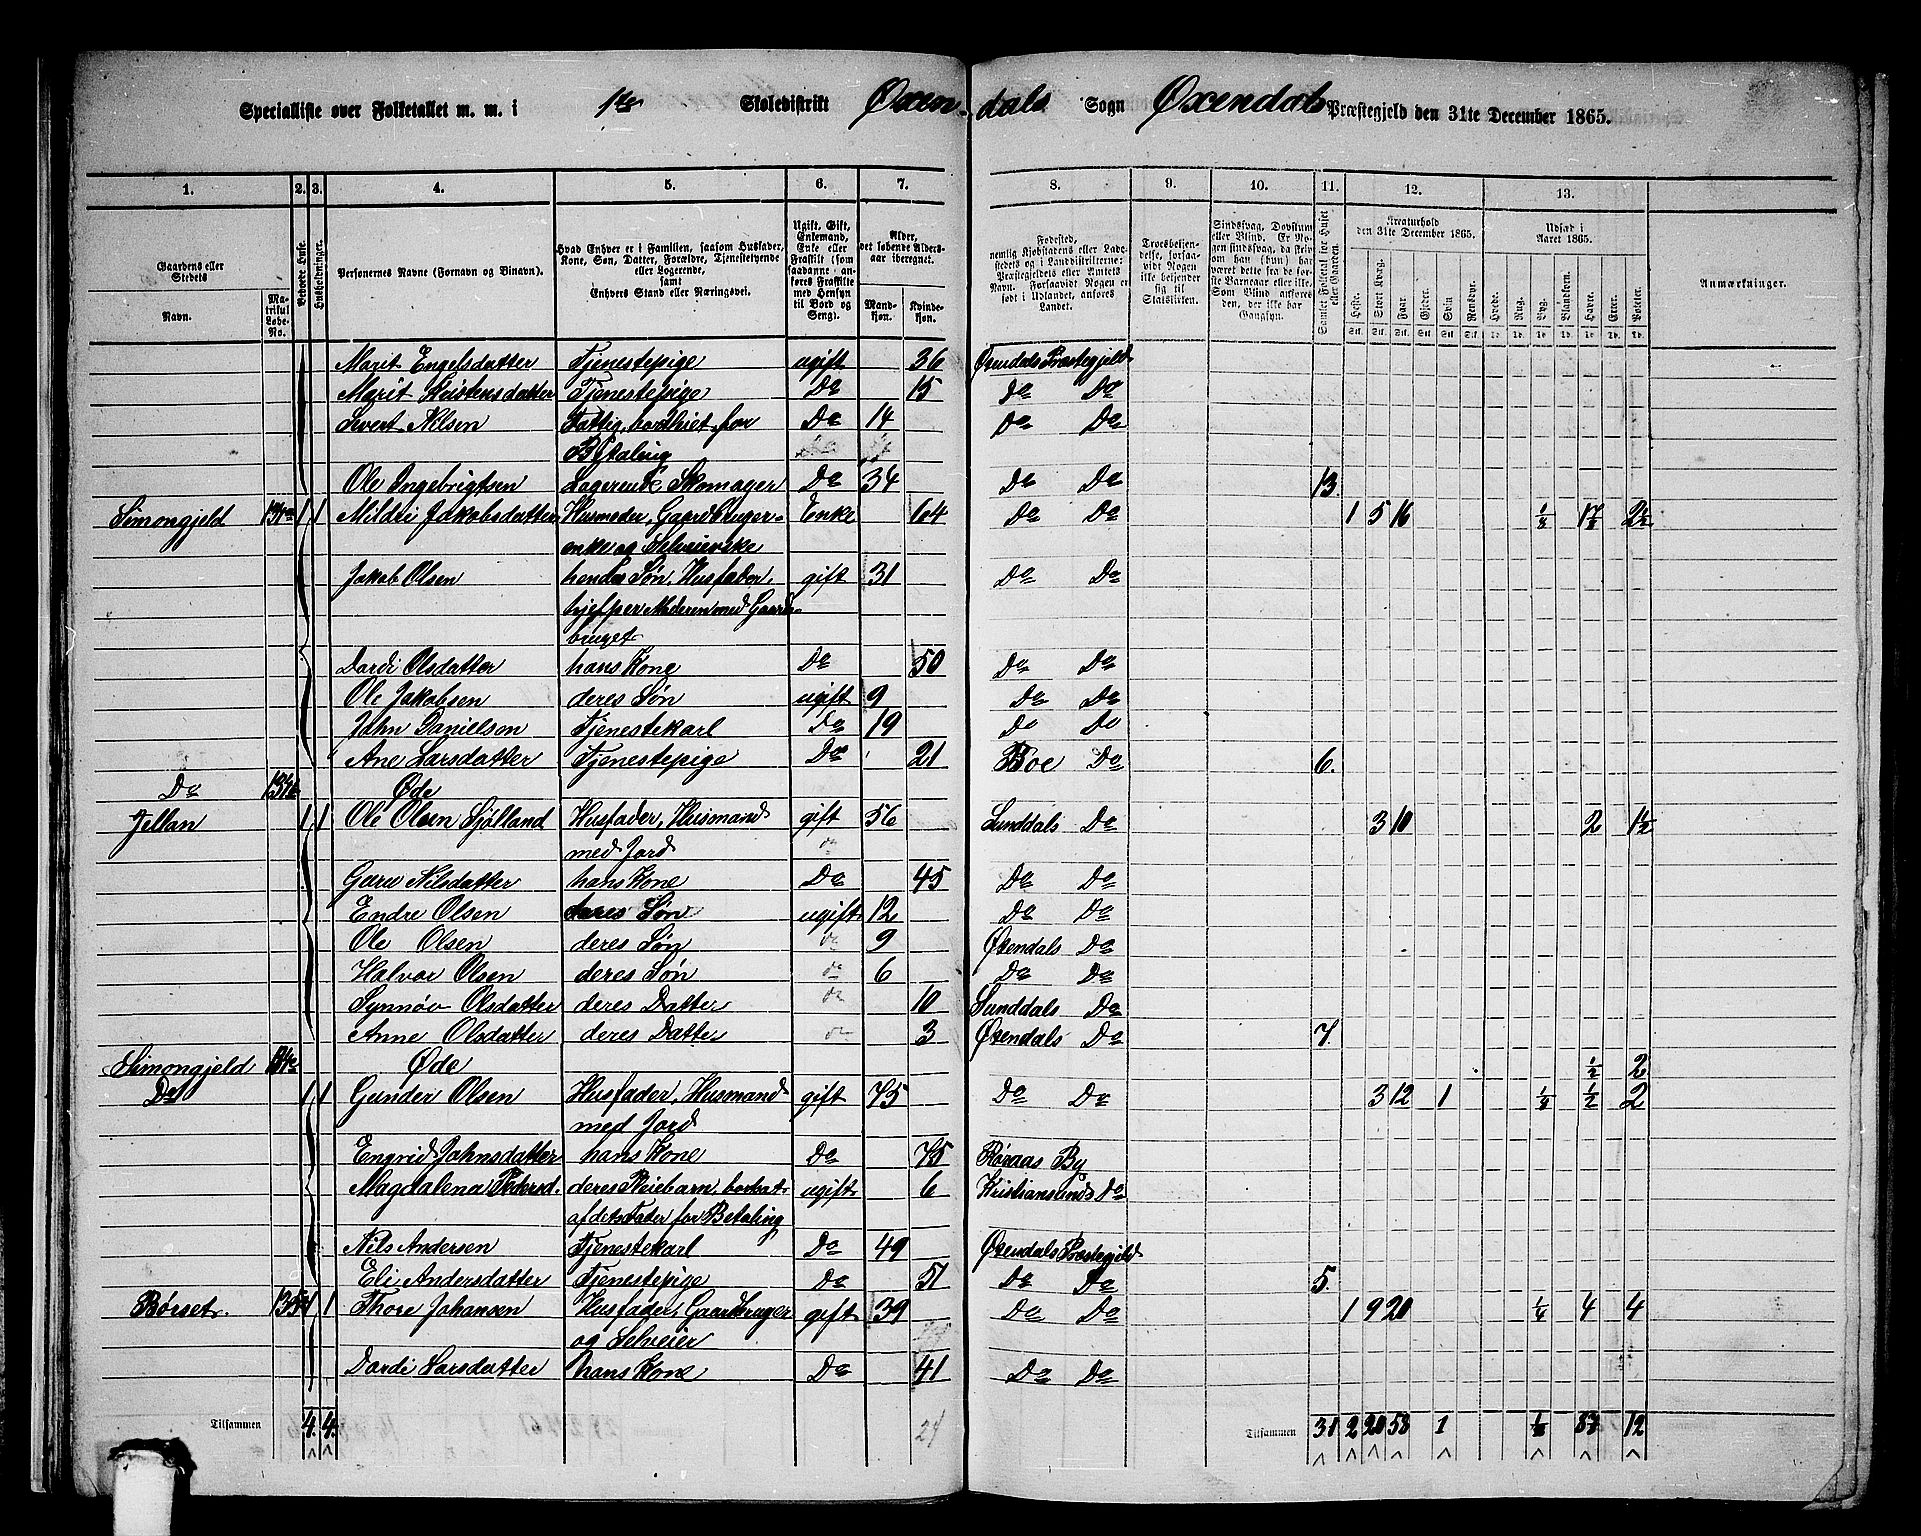 Specialliste over Folketallet m. m. i 1ste Skoledistrikt Øxen-dals Sogn Øxendals Præstegjeld den 31te December 1865.
1. 2. 3. 4. 5. 6. 7. 8. 9. 10. 11. 12. 13.
Gaardens eller Stedets Navn. Matrikul Løbe-No. Beboede Huse. Husholdninger. Personernes Navne (Fornavn og Binavn). Hvad Enhver er i Familien, saasom Husfader, Kone, Søn, Datter, Forældre, Tjenestetyende eller Logerende, samt Enhvers Stand eller Næringsvei. Ugift, Gift, Enkemand, Enke eller Fraskilt (som saadanne anføres Fraskilte med Hensyn til Bord og Seng). Alder, det løbende Aldersaar iberegnet. Mandkjøn. Kvindekjøn. Fødested, nemlig Kjøbstadens eller Ladestedets og i Landdistrikterne: Præstegjeldets eller Amtets Navn. Forsaavidt Nogen er født i Udlandet, anføres Landet. Troesbekjendelse, forsaavidt Nogen ikke bekjender sig til Statskirken. Sindssvag, Døvstum eller Blind. Samlet Folketal for Huset eller Gaarden. Kreaturhold den 31te December 1865. Heste. Stort Kvæg. Faar. Gjeder. Svin. Rensdyr. Udsæd i Aaret 1865. Hvede. Rug. Byg. Blandkorn. Havre. Erter. Poteter. Anmærkninger.
Marit Engelsdatter Tjenestepige ugift 36 Øxendals Præstegjeld
Marit Kristensdatter Tjenestepige Do 15 Do Do
Sivert Nilsen Fattig, bortsat for Do 14 Do Do
Betaling
Ole Ingebrigtsen Logerende Skomager Do 34 Do Do 13.
Simongjeld 1 1 Mildri Jakobsdatter Husmoder, Gaardbruger- Enke 64 Do Do 1 5 16 2½
enke og Selveierske
Jakob Olsen hendes Søn, Husfader, gift 31 Do Do
hjelper Moderen med Gaards-
bruget
Dardi Olsdatter hans Kone Do 50 Do Do
Ole Jakobsen deres Søn ugift 9 Do Do
John Danielsen Tjenestekarl Do 19 Do Do
Ane Larsdatter Tjenestepige Do 21 Boe Do 6.
Do Øde
Jellan 1 1 Ole Olsen Sjølland Husfader, Husmand gift 56 Sunddals Do 3 10 2 1½
med Jord
Guru Nilsdatter hans Kone Do 45 Do Do
Endre Olsen deres Søn ugift 12 Do Do
Ole Olsen deres Søn do 9 Øxendals Do
Halvor Olsen deres Søn do 6 Do Do
Synnøv Olsdatter deres Datter do 10 Sunddals Do
Anne Olsdatter deres Datter do 3 Øxendals Do 7.
Simongjeld Øde ½ 2
Do 1 1 Gunder Olsen Husfader, Husmand gift 75 Do Do 3 12 1 ½ 2
med Jord
Engrid Johnsdatter hans Kone Do 75 Røraas By
Magdalena Pedersd. deres Pleiebarn, bortsat ugift 6 Kristiansunds Do
af dets Fader for Betaling
Nils Andersen Tjenestekarl Do 49 Øxendals Præstegjeld
Eli Andersdatter Tjenestepige Do 51 Do Do 5.
Børset 1 1 Thore Johansen Husfader, Gaardbruger gift 39 Do Do 1 9 20 ¼ 4 4
og Selveier
Dardi Larsdatter hans Kone Do 41 Do Do
Tilsammen 4. 4. Tilsammen 31 2 20 58 1 12